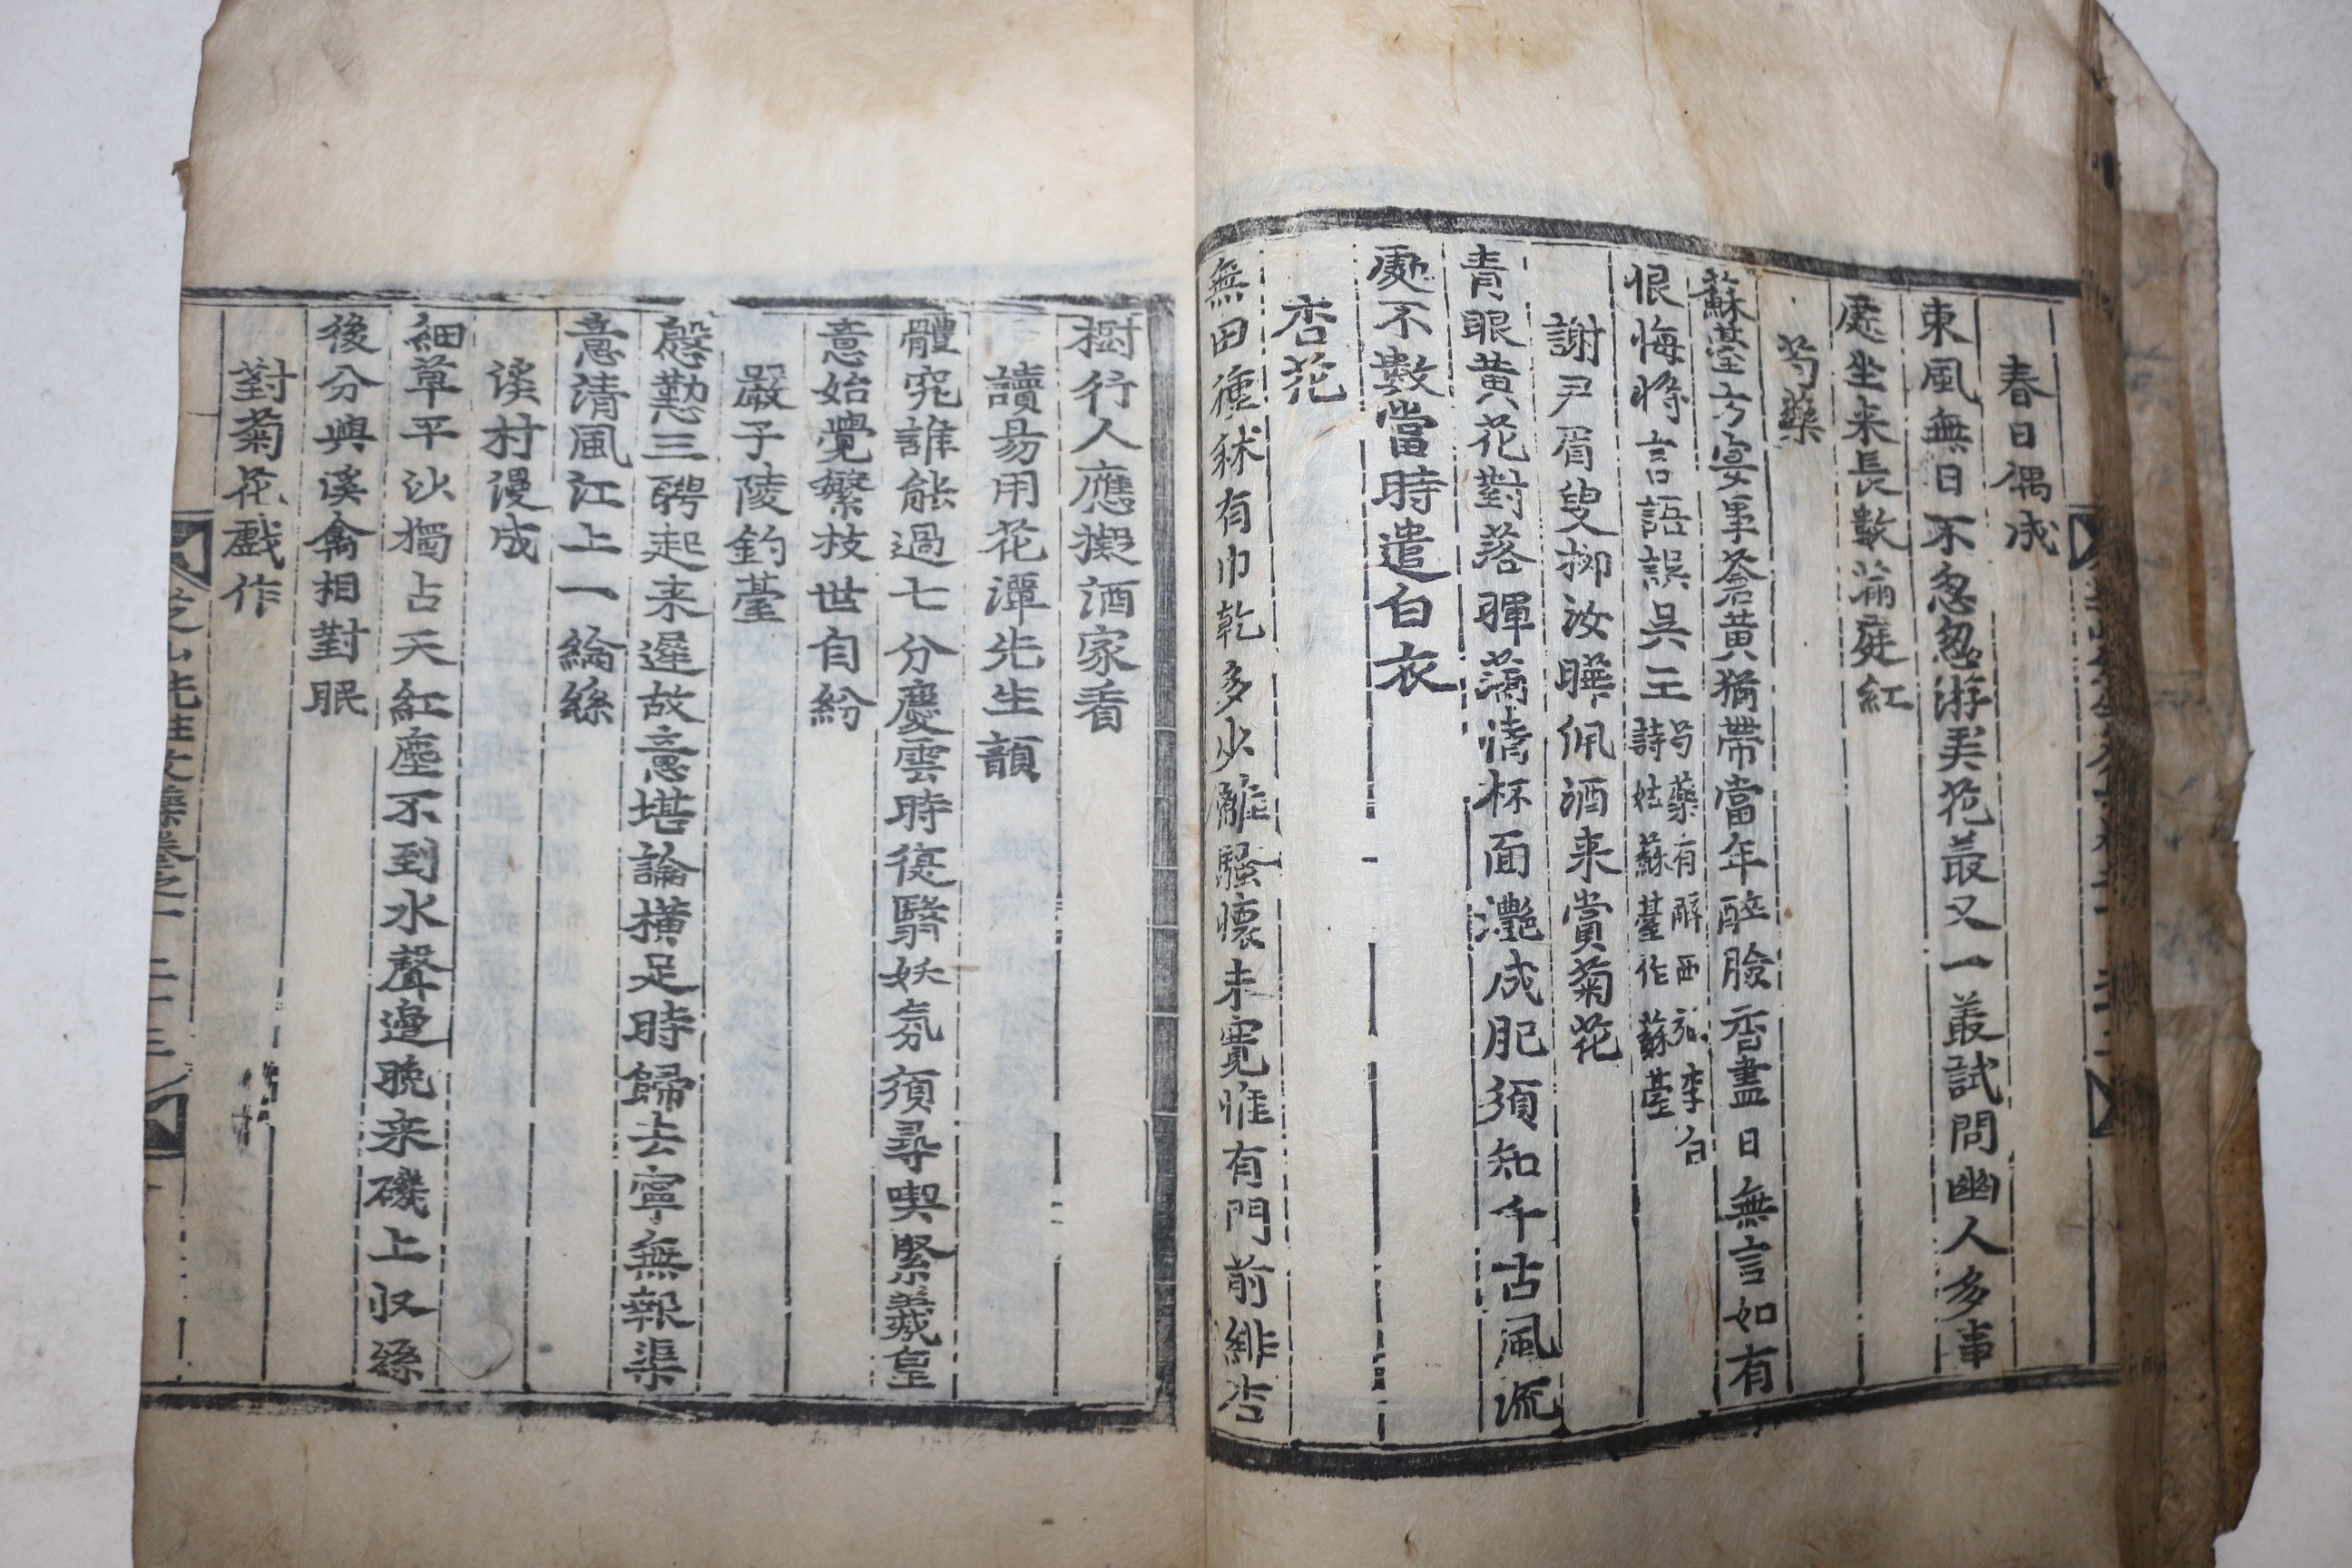 春日偶成
東風無日不忽忽游美花最又一叢試問幽人多事
處坐来長數滿庭紅
芍藥
蘇臺方宴事蒼黃猶帶當年醉臉香盡日無言如有
恨悔將言語誤吳王芍藥有醉西施李白
詩姑蘇臺作蘇臺
謝尹眉叟柳汝曄佩酒来賞菊花
青眼黃花對落暉滿情杯面灔成肥須知千古風流
處不數當時遣白衣
杏花
無田種秫有巾乾多少離騷懷未寬惟有門前緋杏
樹行人應擬酒家看
讀易用花潭先生韻
體究誰能過七分慶雲時復翳妖氛須尋喫緊羲皇
意始覺繁枝世自紛
嚴子陵釣臺
慇懃三聘起来遲故意堪論橫足時歸去寧無報渠
意清風江上一綸絲
溪村漫成
細草平沙獨占天紅塵不到水聲邊晚来磯上収絲
後分與溪禽相對眠
對菊花戲作
芝山先生文集卷之一 二十三